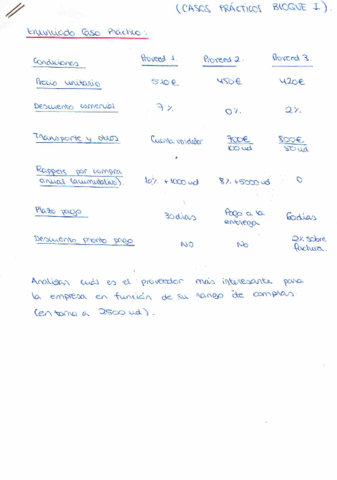 (CASOS PRÁCTICOS BLOQUE I.)
Enunciado Caso Práctico:
Condiciones Proveed 1. Proveed 2. Proveed 3.
Precio unitario 510€ 450€ 420€
Descuento comercial 7% 0% 2%
Transporte y otros Cuenta vendedor 700€/100 ud 800€/50 ud
Rappels por compra anual (acumulativo). 10% +1000 ud 8% +5000 ud 0
Plazo pago 30 días Pago a la entrega 60 días
Descuento pronto pago NO No 2% sobre factura.
Analizar cuál es el proveedor más interesante para
la empresa en función de su rango de compras
(en torno a 2500 ud).